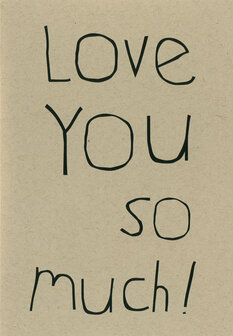 Love
You
so
much!